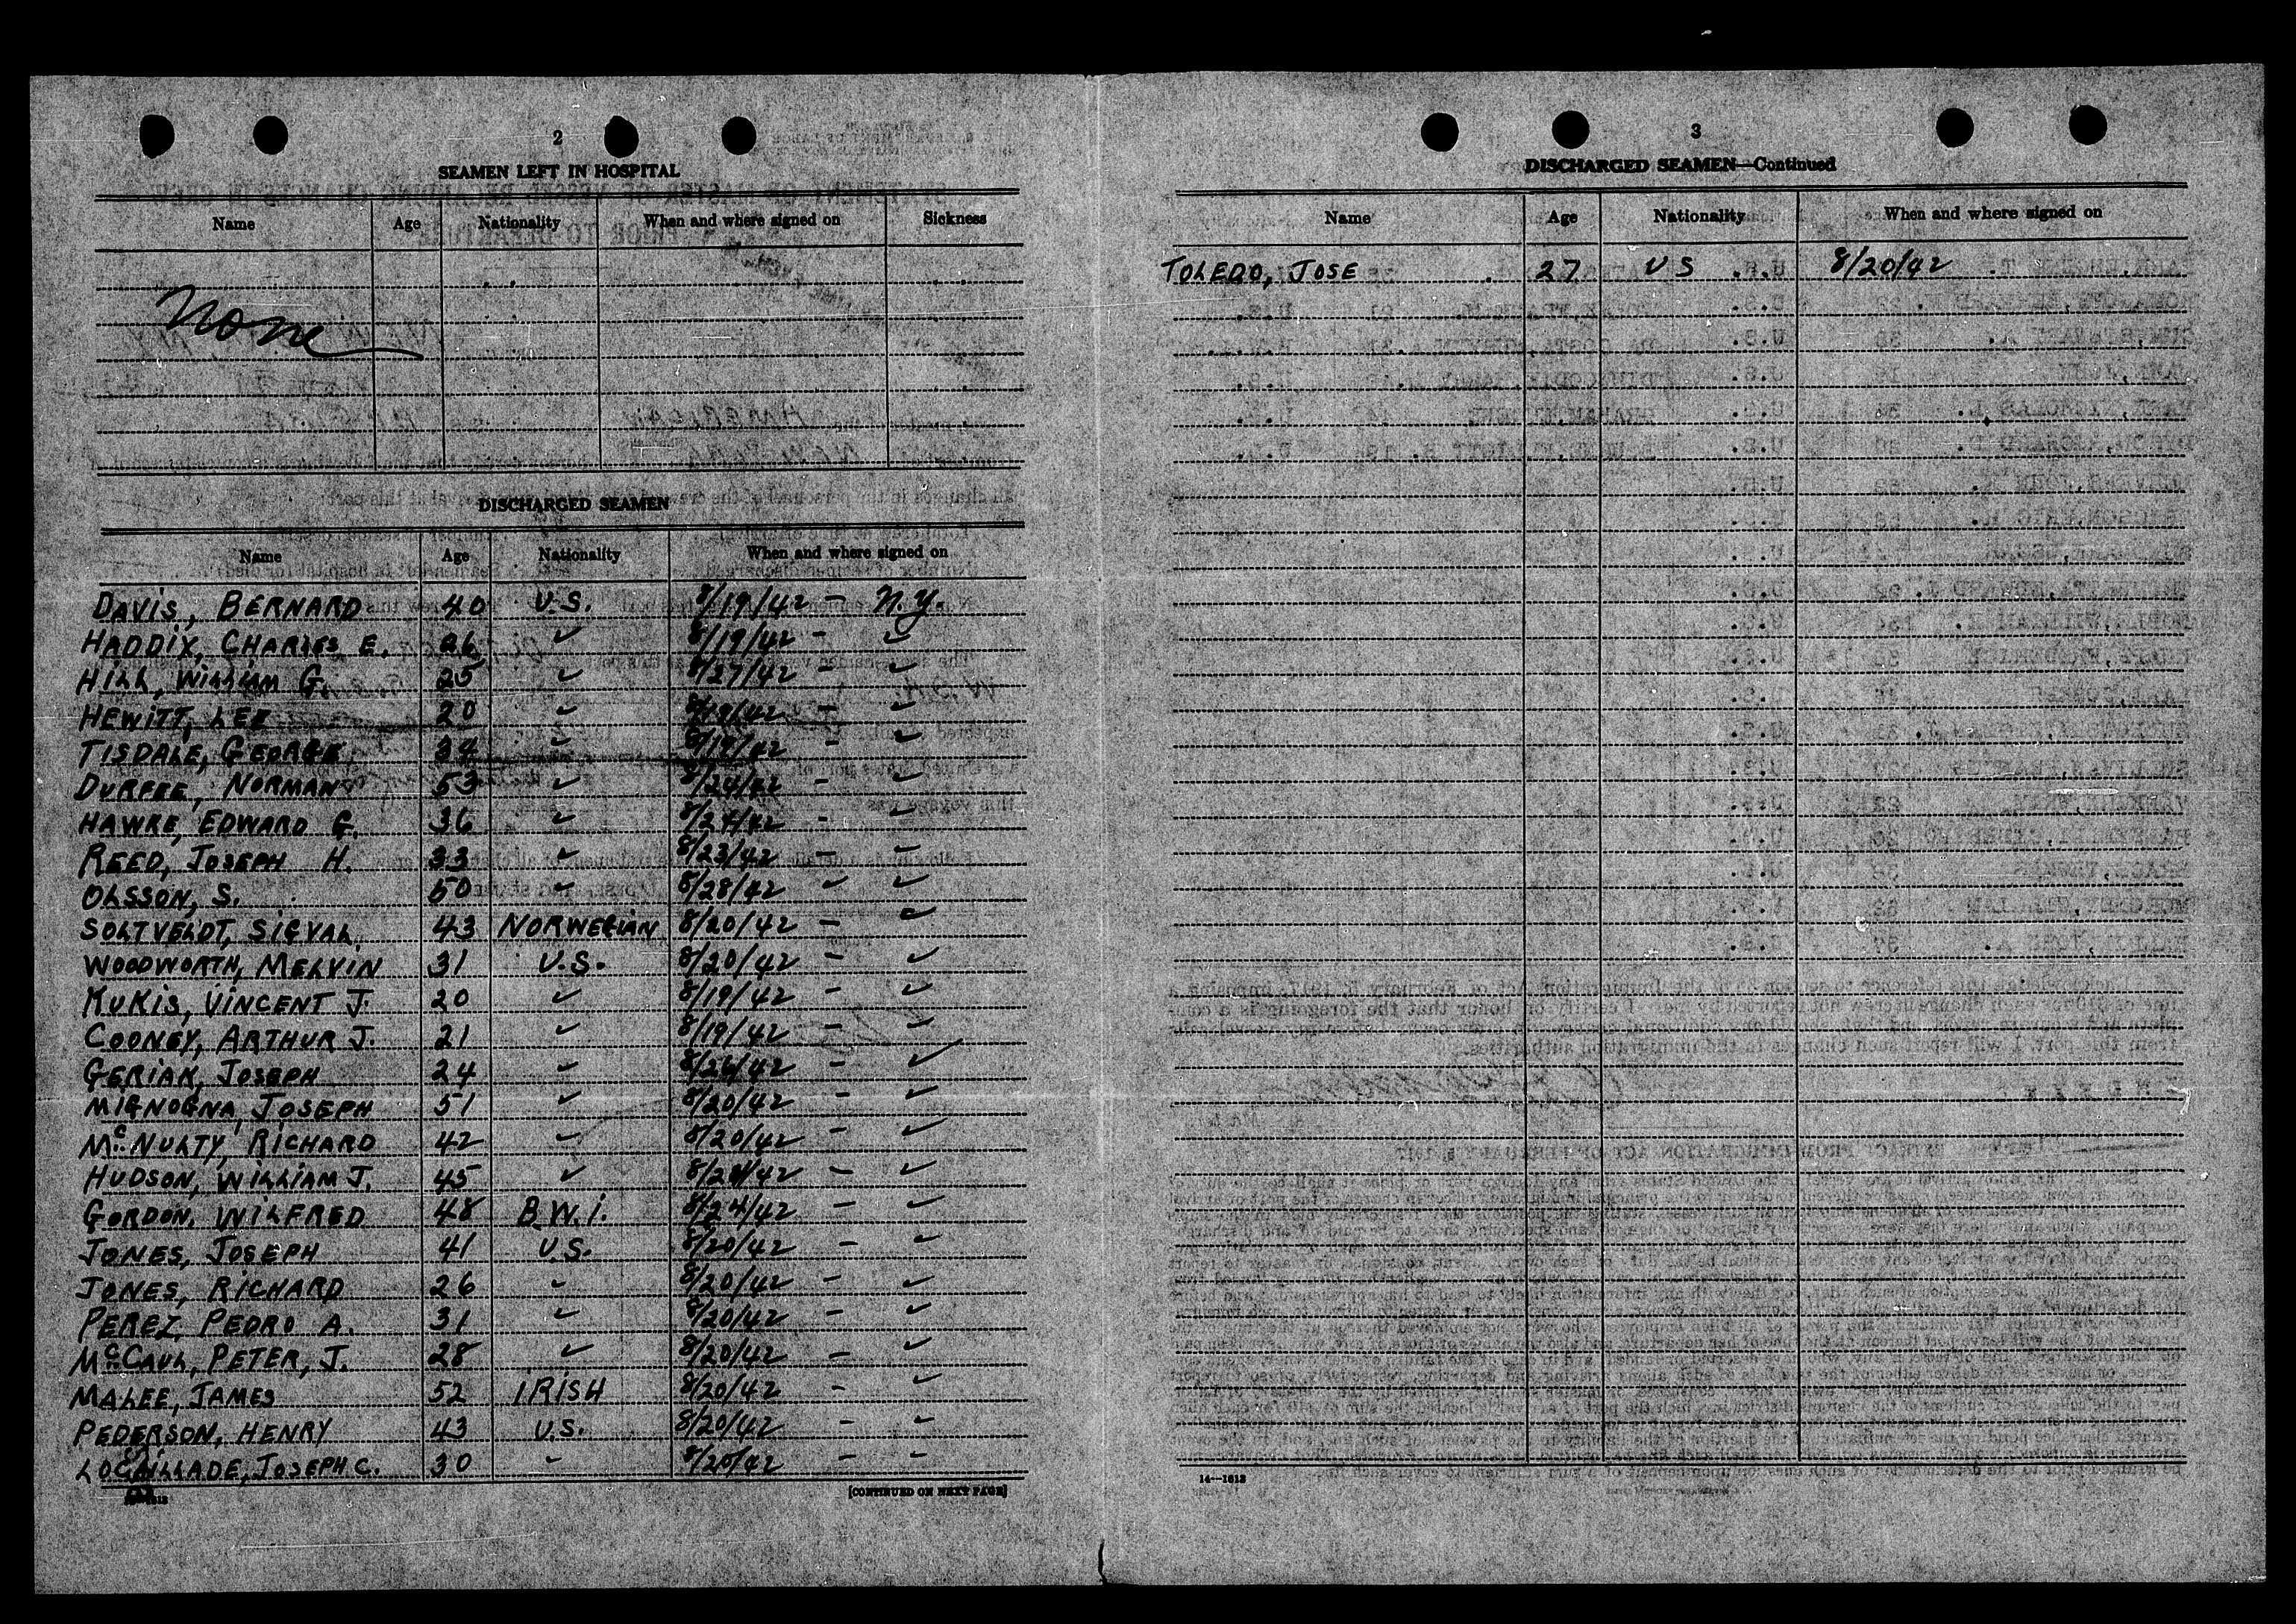 2
SEAMEN LEFT IN HOSPITAL
Name Age Nationality When and where signed on Sickness
None
DISCHARGED SEAMEN
Name Age Nationality When and where signed on
DAVIS, BERNARD 40 U.S. 8/19/42 - N.Y.
HADDIX, CHARLES E. 26 ✓ 8/19/42 - ✓
HILL, WILLIAM G. 25 ✓ 8/27/42 - ✓
HEWITT, LEE 20 ✓ 8/19/42 - ✓
TISDALE, GEORGE 34 ✓ 8/19/42 - ✓
DURFEE, NORMAN 53 ✓ 8/24/42 - ✓
HAWKE, EDWARD G. 36 ✓ 8/24/42 - ✓
REED, JOSEPH H. 33 ✓ 8/23/42 - ✓
OLSSON, S. 50 ✓ 8/28/42 - ✓
SOLTVEDT, SIGVAL 43 NORWEGIAN 8/20/42 - ✓
WOODWORTH, MELVIN 31 U.S. 8/20/42 - ✓
KUKIS, VINCENT J. 20 ✓ 8/19/42 - ✓
COONEY, ARTHUR J. 21 ✓ 8/19/42 - ✓
GERIAK, JOSEPH 24 ✓ 8/26/42 - ✓
MIGNOGNA, JOSEPH 51 ✓ 8/20/42 - ✓
McNULTY, RICHARD 42 ✓ 8/20/42 - ✓
HUDSON, WILLIAM J. 45 ✓ - ✓
GORDON, WILFRED 48 B.W.I. 8/24/42 - ✓
JONES, JOSEPH 41 U.S. 8/20/42 - ✓
JONES, RICHARD 26 ✓ 8/20/42 - ✓
PEREZ, PEDRO A. 31 ✓ 8/20/42 - ✓
McCAUL, PETER, J. 28 ✓ 8/20/42 - ✓
MALEE, JAMES 52 IRISH 8/20/42 - ✓
PEDERSON, HENRY 43 U.S. 8/20/42 - ✓
JOSEPH C. 30 ✓ 8/20/42 - ✓
[CONTINUED ON NEXT PAGE]
3
DISCHARGED SEAMEN—Continued
Name Age Nationality When and where signed on
TOLEDO, JOSE 27 US 8/20/42
14—1613